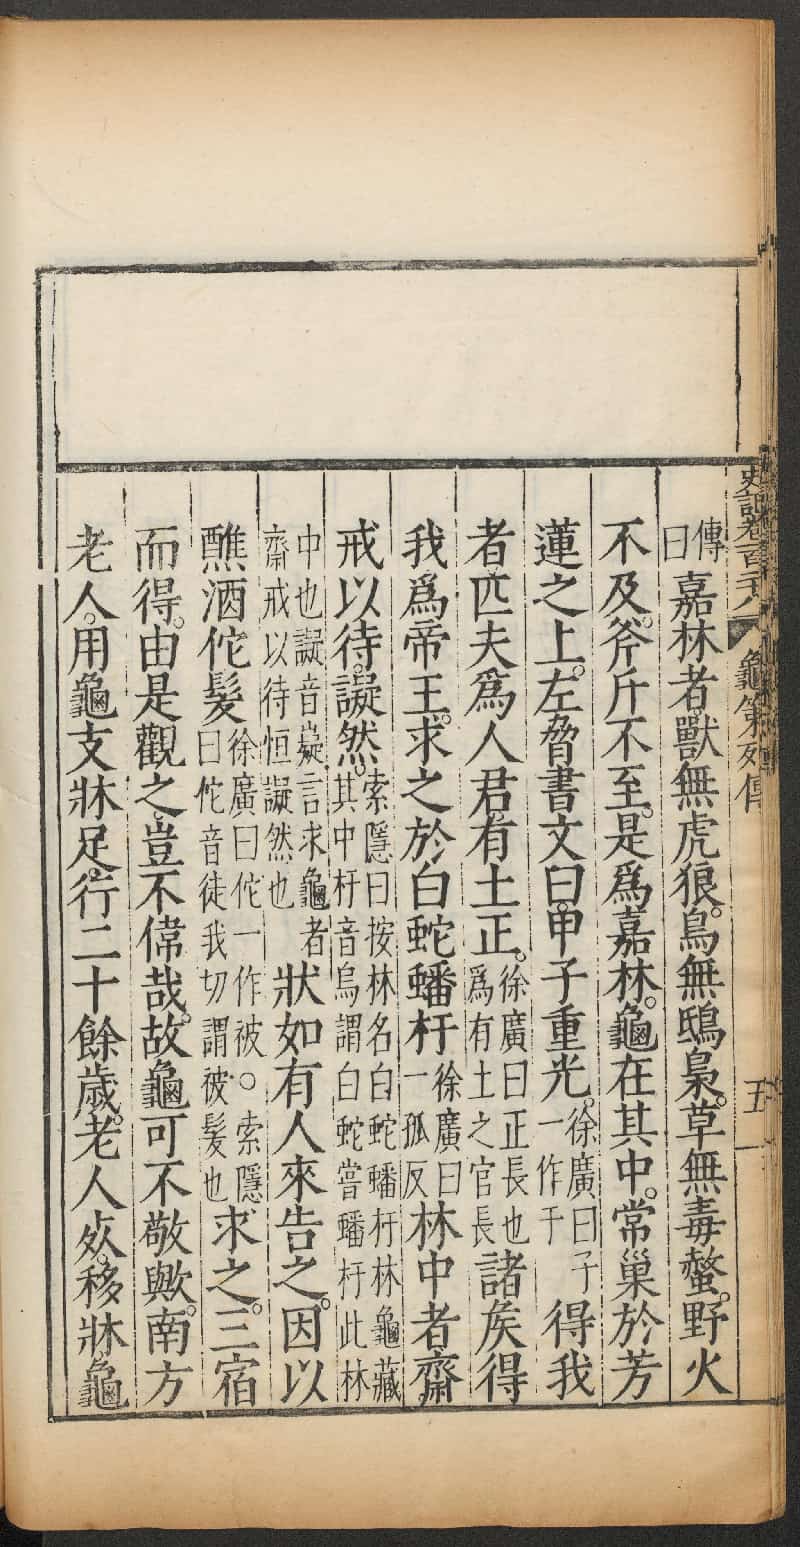 史記卷一百二十八 龜策列傳 五
傳曰嘉林者。獸無虎狼。鳥無鴟梟。草無毒螫。野火
不及。斧斤不至。是爲嘉林。龜在其中。常巢於芳
蓮之上。左脅書文曰。甲子重光。徐廣曰子一作于得我
者匹夫爲人君有土正。徐廣曰正長也爲有土之官長諸矦得
我爲帝王。求之於白蛇蟠杅徐廣曰一孤反林中者齋
戒以待。譺然。索隱曰按林名白蛇蟠杅林龜藏其中杅音烏謂白蛇嘗蟠杅此林
中也譺音嶷言求龜者齋戒以待恒譺然也狀如有人來告之。因以
醮酒佗髮徐廣曰佗一作被。索隱曰佗音徒我切謂被髮也求之。三宿
而得。由是觀之豈不偉哉。故龜可不敬歟。南方
老人。用龜支牀足。行二十餘歲。老人死。移牀龜